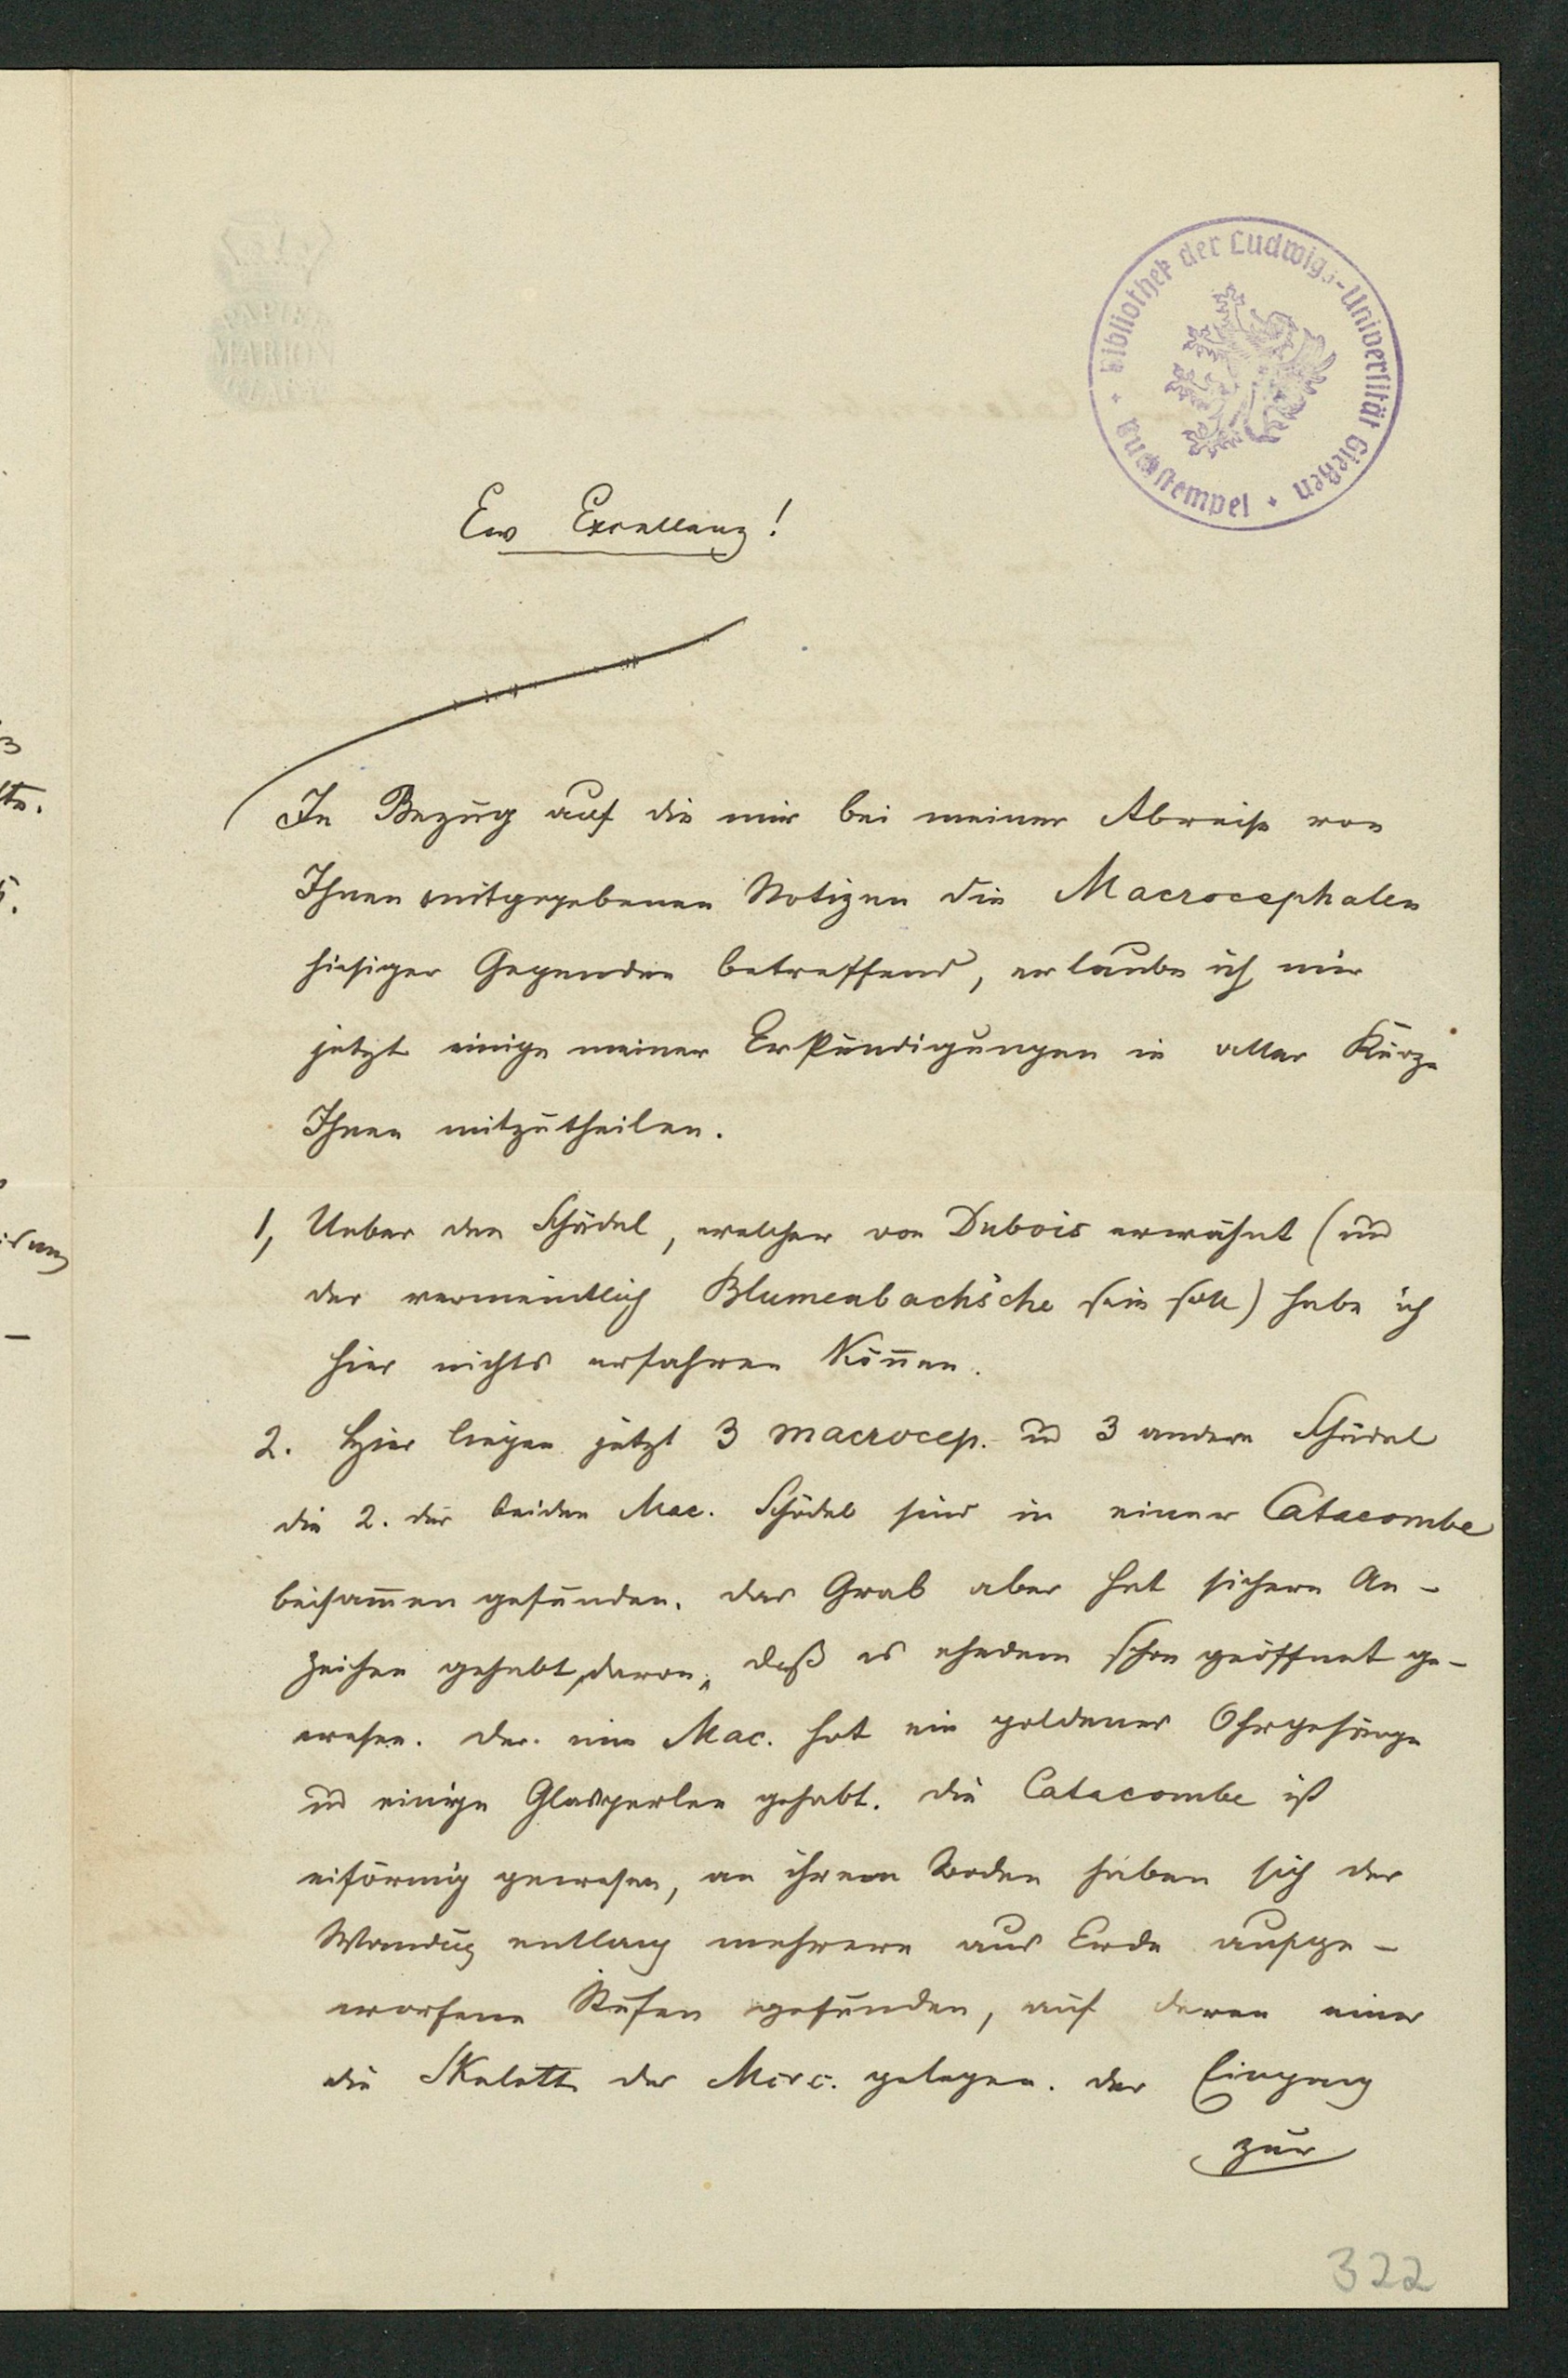 Bibliothek der Ludwigs-Universität Gießen
Buchstempel
Ew Excellenz!
In Bezug auf die mir bei meiner Abreise von
Ihnen mitgegebenen Notizen die Macrocephalen
hiesiger Gegenden betreffend, erlaube ich mir
jetzt einige meiner Erkundigungen in aller Kürze
Ihnen mitzutheilen.
1, Ueber den Schädel, welcher von Dubois erwähnt (und
der vermeintlich Blumenbach'sche sein soll) habe ich
hier nichts erfahren können.
2. Hier liegen jetzt 3 macrocep. und 3 andere Schädel
die 2. der beiden Mac. Schädel sind in einer Catacombe
beisam̅en gefunden. Das Grab aber hat sichere An-
zeichen gehabt, davon, daß es ehedem schon geöffnet ge-
wesen. Der eine Mac. hat ein goldenes Ohrgehänge
und einige Glasperlen gehabt. Die Catacombe ist
eiförmig gewesen, an ihrem Boden haben sich der
Wandug entlang mehrere aus Erde aufge-
worfene Stufen gefunden, auf deren einer
die Skelette der Macr. gelegen. Der Eingang
zur
322